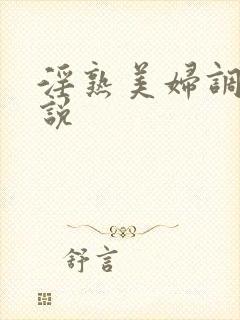 淫熟美婦調
說
舒言